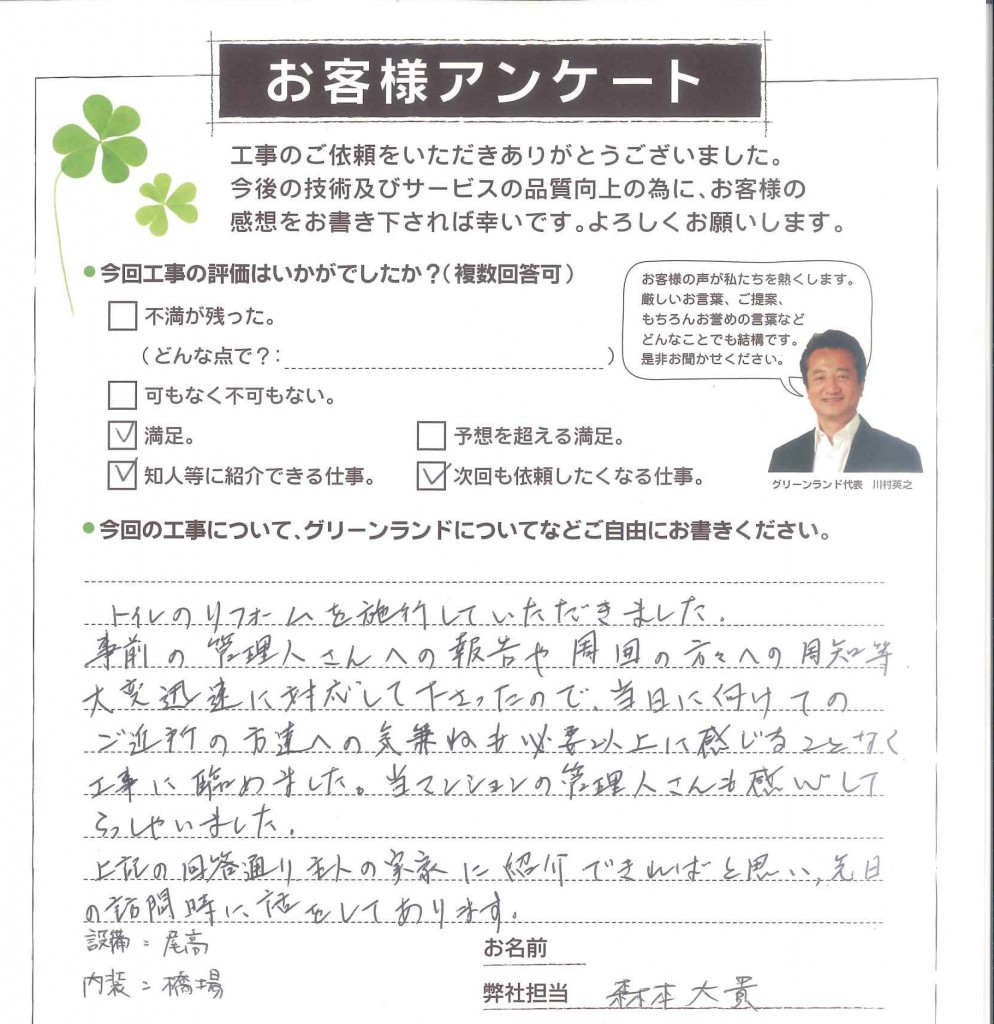 お客様アンケート
工事のご依頼をいただきありがとうございました。
今後の技術及びサービスの品質向上の為に、お客様の
感想をお書き下されば幸いです。よろしくお願いします。
今回工事の評価はいかがでしたか？（複数回答可）
不満が残った。
（どんな点で？：　）
可もなく不可もない。
満足。
予想を超える満足。
知人等に紹介できる仕事。
次回も依頼したくなる仕事。
お客様の声が私たちを熱くします。
厳しいお言葉、ご提案、
もちろんお誉めの言葉など
どんなことでも結構です。
是非お聞かせください。
グリーンランド代表　川村英之
今回の工事について、グリーンランドについてなどご自由にお書きください。
トイレのリフォームを施行していただきました.
事前の管理人さんへの報告や周囲の方々への周知等
大変迅速に対応して下さったので、当日に向けての
ご近所の方達への気兼ねも必要以上に感じることなく
工事に臨めました。当マンションの管理人さんも感心して
らっしゃいました.
上記の回答通り の家に紹介できればと思い、先日
の訪問時に、話をしてあります。
設備：尾高
内装：橋場
お名前
弊社担当 森本大貴